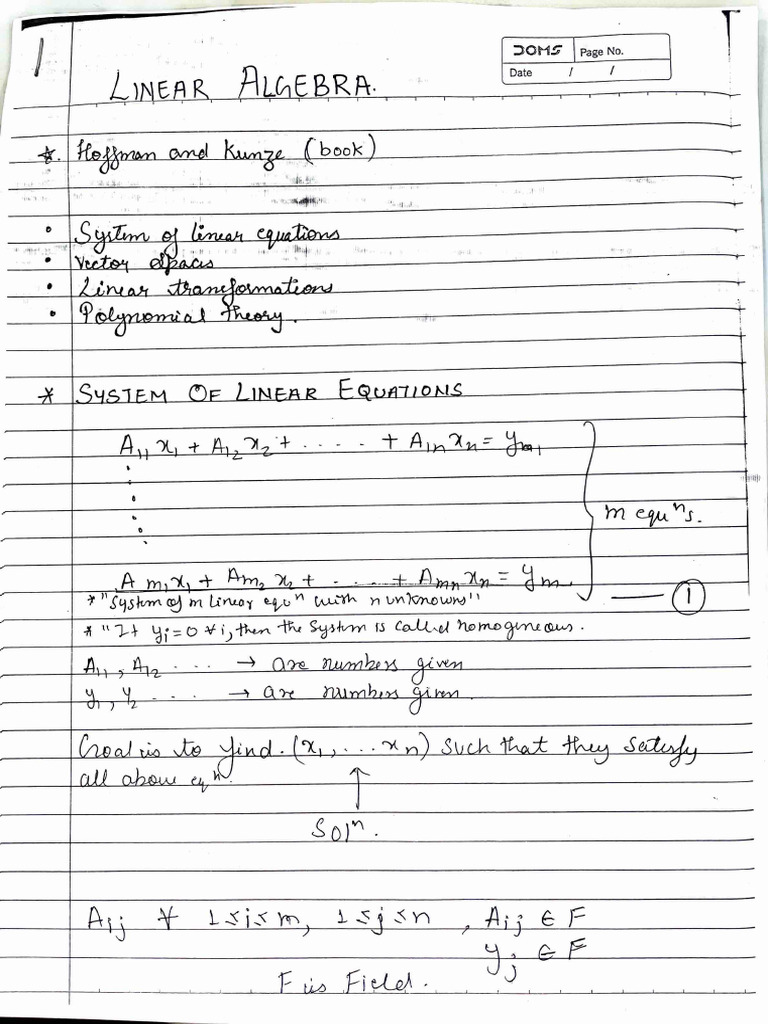 1
DOMS Page No.
Date / /
LINEAR ALGEBRA.
*. Hoffman and Kunze (book)
• System of linear equations
• Vector spaces
• Linear transformations
• Polynomial theory.
* SYSTEM OF LINEAR EQUATIONS
A₁₁x₁ + A₁₂x₂ + ..... + A₁ₙxₙ = y₁
m equⁿs.
Aₘ₁x₁ + Aₘ₂x₂ + ..... + Aₘₙxₙ = yₘ
* "System of m linear equⁿ with n unknowns" —— ①
* "If yᵢ=0 ∀ i, then the System is called homogineous.
A₁₁, A₁₂ .... → are numbers given
y₁, y₂ .... → are numbers given.
Goal is to find. (x₁, ... xₙ) such that they satisfy
all above eqⁿ.
↑
Solⁿ.
Aᵢⱼ ∀ 1≤i≤m, 1≤j≤n , Aᵢⱼ ∈ F
yⱼ ∈ F
F is Field.